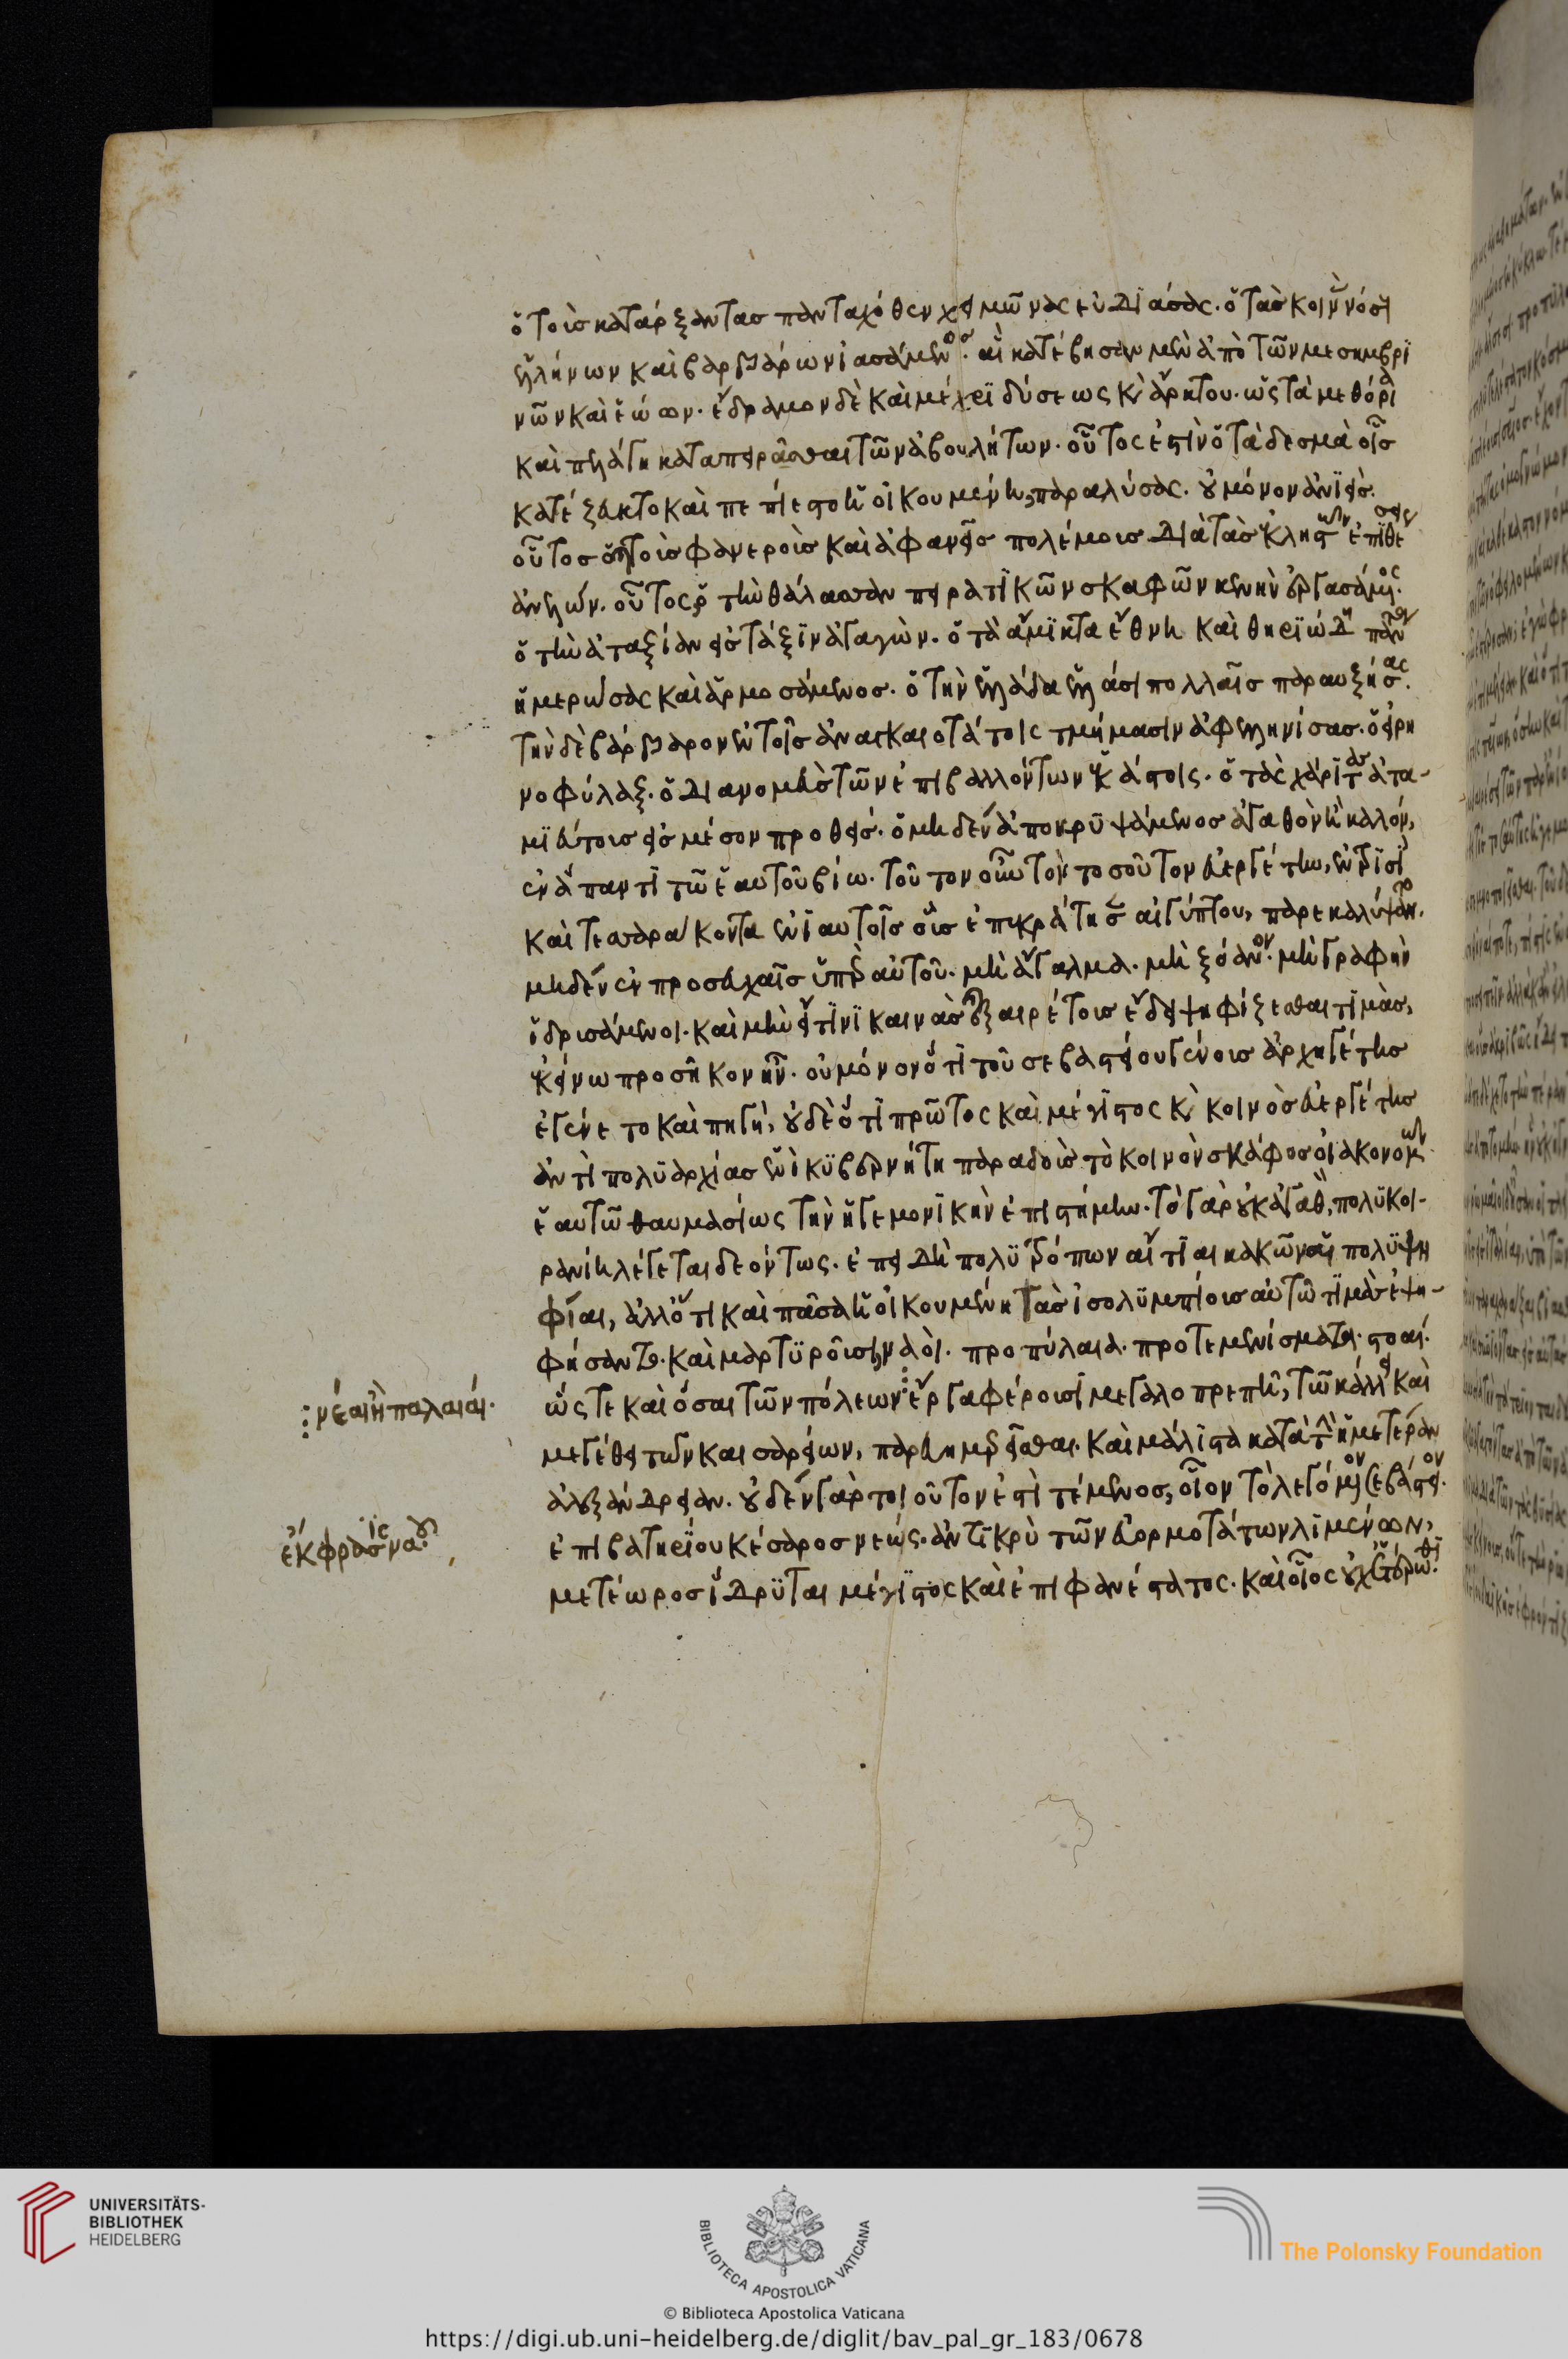 ὁ τοὺς καταρξαντας πανταχόθεν χειμῶνας εὐδιάσας. ὁ τὰς κοινὰς νόσους
ἑλλήνων καὶ βαρβάρων ἰασάμενος. αἳ κατέβησαν μὲν ἀπὸ τῶν μεσημβρι
νῶν καὶ ἑώων. ἔδραμον δὲ καὶ μέχρι δύσεως καὶ ἄρκτου. ὡς τὰ μεθόρια
καὶ πελάγη καταπειρᾶσθαι τῶν ἀβουλήτων. οὗτος ἐστὶν ὁ τὰ δεσμὰ οἷς
κατέζευκτο καὶ πεπίεστο ἡ οἰκουμένη, παραλύσας. οὐ μόνον ἀνεὶς.
οὗτος ὁ καὶ τοὺς φανεροὺς καὶ ἀφανεῖς πολέμους διὰ τὰς ἐκ ληστῶν ἐπιθέσεις
ἀνελών. οὗτος ὁ τὴν θάλασσαν πειρατικῶν σκαφῶν κενὴν ἐργασάμενος.
ὁ τὴν ἀταξίαν εἰς τάξιν ἀγαγὼν. ὁ τὰ ἄμικτα ἔθνη καὶ θηριώδη πάντα
ἡμερώσας καὶ ἁρμοσάμενος. ὁ τὴν ἑλλάδα ἑλλάσι πολλαῖς παραυξήσας.
τὴν δὲ βάρβαρον ἐν τοῖς ἀναγκαιοτάτοις τμήμασιν ἀφελληνίσας. ὁ εἰρη
νοφύλαξ. ὁ διανομεὺς τῶν ἐπιβαλλόντων ἑκάστοις. ὁ τὰς χάριτας ἀτα-
μιεύτους εἰς μέσον προθείς. ὁ μηδὲν ἀποκρυψάμενος ἀγαθὸν ἢ καλόν,
ἐν ἅπαντι τῷ ἑαυτοῦ βίῳ. τοῦτον οὖν τὸν τοσοῦτον εὐεργέτην, ἐν τρισὶ
καὶ τεσσαράκοντα ἐνιαυτοῖς οὓς ἐπικράτησεν αἰγύπτου, παρεκαλύψαντο.
μηδὲν ἐν προσευχαῖς ὑπὲρ αὐτοῦ. μὴ ἄγαλμα. μὴ ξόανον. μὴ γραφὴν
ἱδρυσάμενοι. καὶ μὴν εἴ τινι καινὰς ἢ ἐξαιρέτους ἔδει ψηφίζεσθαι τιμὰς,
ἐκείνῳ προσῆκον ἦν. οὐ μόνον ὅτι τοῦ σεβαστείου γένους ἀρχηγέτης
ἐγένετο καὶ πηγὴ, οὐδὲ ὅτι πρῶτος καὶ μέγιστος καὶ κοινὸς εὐεργέτης
ἀντὶ πολυαρχίας ἑνὶ κυβερνήτῃ παραδοὺς τὸ κοινὸν σκάφος οἰακονομῶν
ἑαυτῷ θαυμασίως τὴν ἡγεμονικὴν ἐπιστήμην. τὸ γὰρ οὐκ ἀγαθὸν, πολυκοι-
ρανίη λέγεται δεόντως. ἐπειδὴ πολυτρόπων αἴτιαι κακῶν αἱ πολυψη
φίαι, ἀλλ' ὅτι καὶ πᾶσα ἡ οἰκουμένη τὰς ἰσολυμπίους αὐτῷ τιμὰς ἐψη-
φήσαντο. καὶ μαρτυροῦσι ναοὶ. προπύλαια. προτεμενίσματα. στοαί.
ὥστε καὶ ὅσαι τῶν πόλεων ἔργα φέρουσι μεγαλοπρεπῆ, τῷ κάλλει καὶ
μεγέθει τῶν καισαρείων, παρευημερεῖσθαι. καὶ μάλιστα κατὰ τὴν ἡμετέραν
ἀλεξάνδρειαν. οὐδὲν γὰρ τοιοῦτον ἐστὶ τέμενος, οἷον τὸ λεγόμενον σεβάστειον.
ἐπιβατηρίου κέσαρος νεώς. ἀντικρὺ τῶν εὐορμοτάτων λιμένων,
μετέωρος ἵδρυται μέγιστος καὶ ἐπιφανέστατος. καὶ οἷος οὐχ ἑτέρωθι.
νέαι ἢ παλαιαί.
ἔκφρασις ναοῦ
UNIVERSITÄTS-
BIBLIOTHEK
HEIDELBERG
BIBLIOTECA APOSTOLICA VATICANA
The Polonsky Foundation
© Biblioteca Apostolica Vaticana
https://digi.ub.uni-heidelberg.de/diglit/bav_pal_gr_183/0678